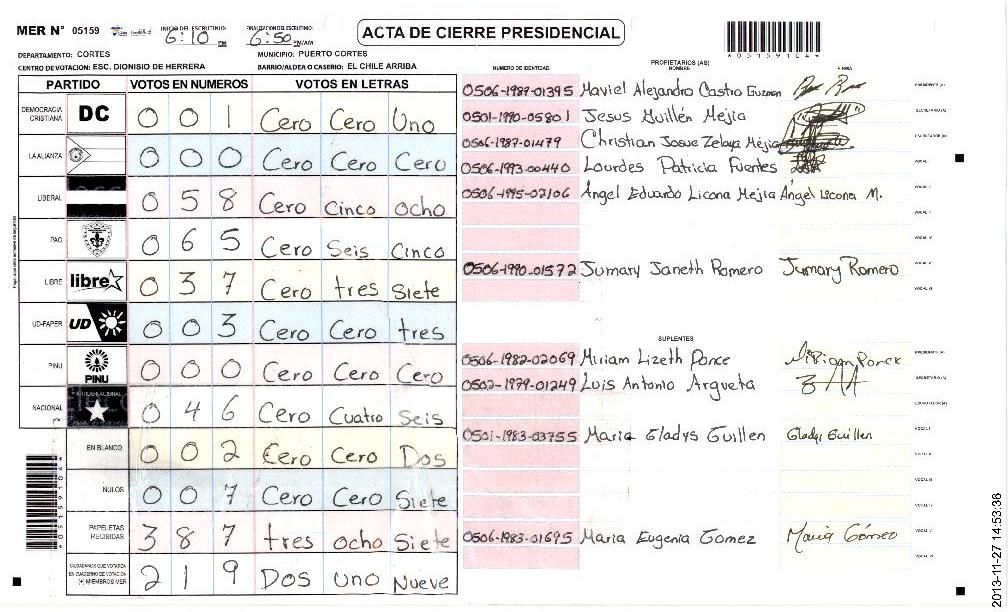 MER N° 05159
INICIO DEL ESCRUTINIO: 6:10 PM
FINALIZACION DEL ESCRUTINIO: 6:50 PM/AM
ACTA DE CIERRE PRESIDENCIAL
*05159104*
DEPARTAMENTO: CORTES
MUNICIPIO: PUERTO CORTES
CENTRO DE VOTACION: ESC. DIONISIO DE HERRERA
BARRIO/ALDEA O CASERIO: EL CHILE ARRIBA
PARTIDO VOTOS EN NUMEROS VOTOS EN LETRAS
DEMOCRACIA CRISTIANA DC 0 0 1 Cero Cero Uno
LA ALIANZA 0 0 0 Cero Cero Cero
LIBERAL 0 5 8 Cero Cinco ocho
PAC 0 6 5 Cero Seis Cinco
LIBRE libre 0 3 7 Cero tres Siete
UD-FAPER UD 0 0 3 Cero Cero tres
PINU PINU 0 0 0 Cero Cero Cero
NACIONAL 0 4 6 Cero Cuatro Seis
EN BLANCO 0 0 2 Cero Cero Dos
NULOS 0 0 7 Cero Cero Siete
PAPELETAS RECIBIDAS 3 8 7 tres ocho Siete
CIUDADANOS QUE VOTARON EN CUADERNO DE VOTACION (+) MIEMBROS MER 2 1 9 Dos uno Nueve
NUMERO DE IDENTIDAD
PROPIETARIOS (AS)
NOMBRE FIRMA
0506-1987-01395 Maviel Alejandro Castro Guzman PRESIDENTE (A)
0501-1990-05801 Jesus Guillén Mejia SECRETARIO (A)
0506-1987-01479 Christian Josue Zelaya Mejia ESCRUTADOR (A)
0506-1993-00440 Lourdes Patricia Fuentes VOCAL I
0506-1995-02106 Ángel Eduardo Licona Mejia Ángel Licona M.
0506-1990-01572 Jumary Janeth Romero Jumary Romero VOCAL V
SUPLENTES
0506-1982-02069 Miriam Lizeth Ponce Miriam Ponce PRESIDENTE (A)
0502-1979-01249 Luis Antonio Argueta SECRETARIO (A)
ESCRUTADOR (A)
0501-1983-03755 Maria Gladys Guillen Gladys Guillen VOCAL I
0506-1983-01695 Maria Eugenia Gomez Maria Gómez VOCAL V
*05159104*
2013-11-27 14:53:36